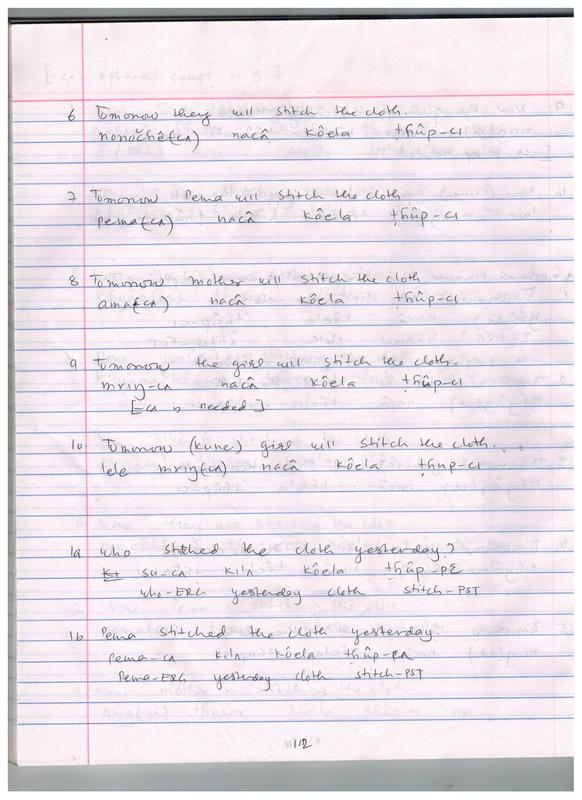 6 Tomorrow they will stitch the cloth.
nonočhê(cʌ) nacâ kôela ṭhûp-cɪ
7 Tomorrow Pema will stitch the cloth
pema(cʌ) nacâ kôela ṭhûp-cɪ
8 Tomorrow mother will stitch the cloth
ama(cʌ) nacâ kôela ṭhûp-cɪ
9 Tomorrow the girl will stitch the cloth.
mriŋ-cʌ nacâ kôela ṭhûp-cɪ
[-cʌ is needed]
10 Tomorrow (kune) girl will stitch the cloth.
lele mriŋ(cʌ) nacâ kôela ṭhup-cɪ
1a who stitched the cloth yesterday?
su-cʌ kilʌ kôela ṭhûp-pɛ
who-ERG yesterday cloth stitch-PST
1b Pema stitched the cloth yesterday.
pema-cʌ kilʌ kôela ṭhûp-pʌ
Pema-ERG yesterday cloth stitch-PST
112